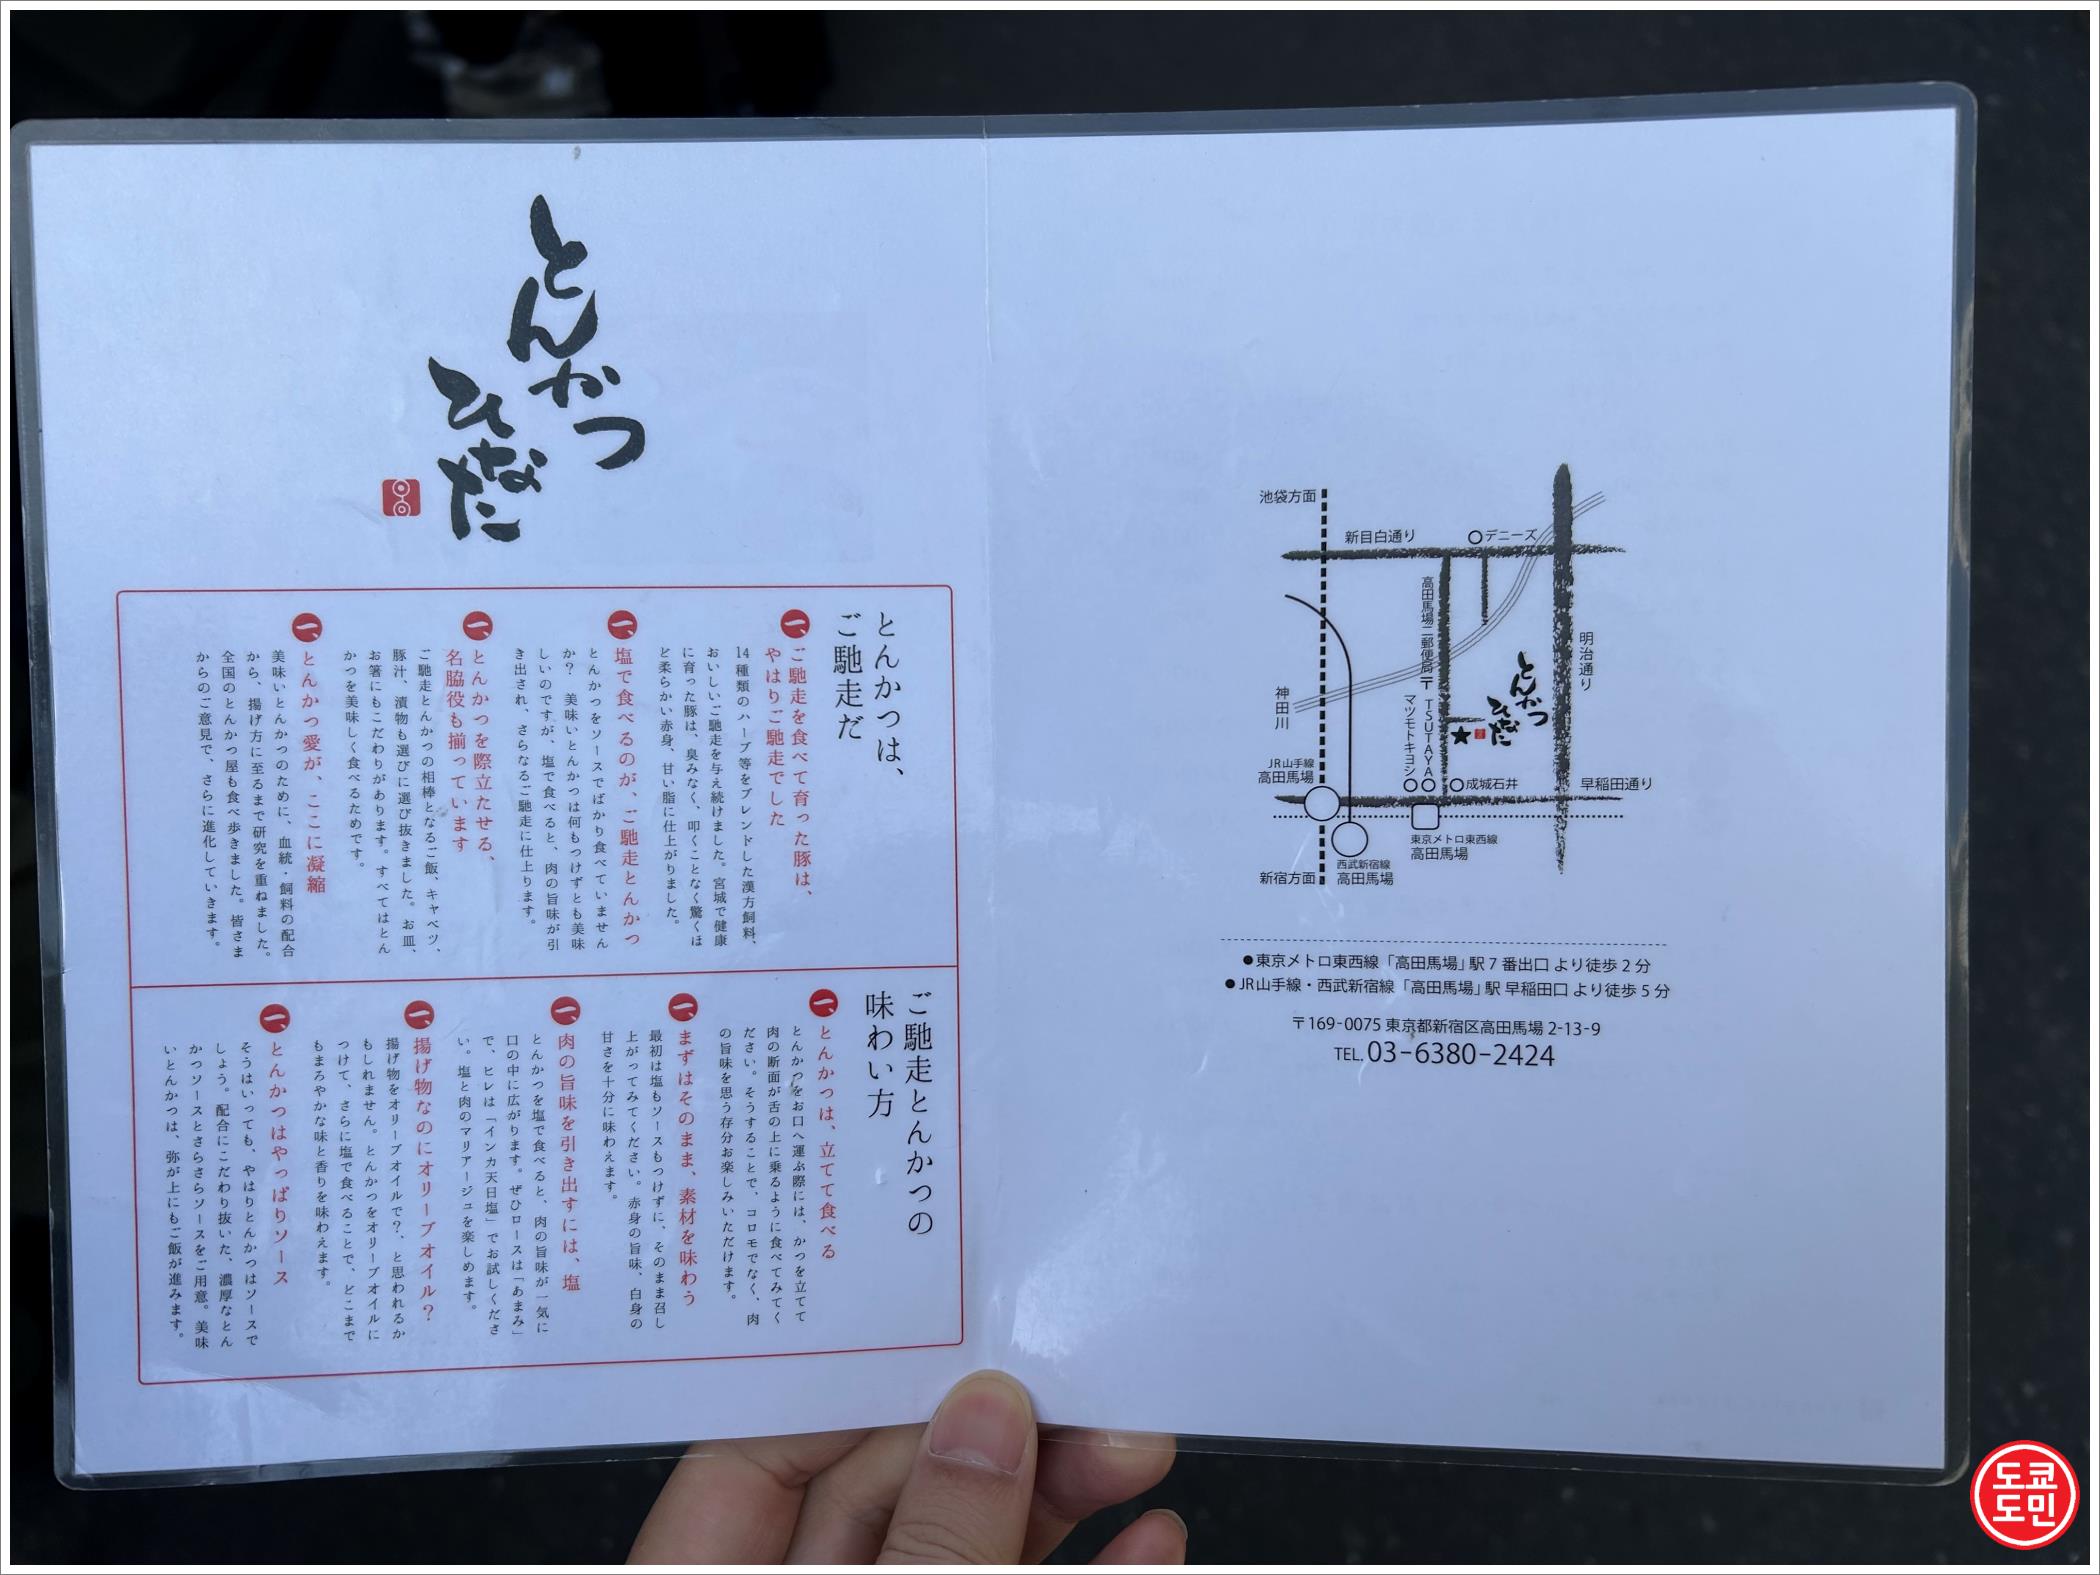 とんかつ
ひなた
とんかつは、
ご馳走だ
一、
ご馳走を食べて育った豚は、
やはりご馳走でした
14種類のハーブ等をブレンドした漢方飼料、
おいしいご馳走を与え続けました。宮城で健康
に育った豚は、臭みなく、叩くことなく驚くほ
ど柔らかい赤身、甘い脂に仕上がりました。
一、
塩で食べるのが、ご馳走とんかつ
とんかつをソースでばかり食べていません
か? 美味いとんかつは何もつけずとも美味
しいのですが、塩で食べると、肉の旨味が引
き出され、さらなるご馳走に仕上ります。
一、
とんかつを際立たせる、
名脇役も揃っています
ご馳走とんかつの相棒となるご飯、キャベツ、
豚汁、漬物も選びに選び抜きました。お皿、
お箸にもこだわりがあります。すべてはとん
かつを美味しく食べるためです。
一、
とんかつ愛が、ここに凝縮
美味いとんかつのために、血統・飼料の配合
から、揚げ方に至るまで研究を重ねました。
全国のとんかつ屋も食べ歩きました。皆さま
からのご意見で、さらに進化していきます。
ご馳走とんかつの
味わい方
一、
とんかつは、立てて食べる
とんかつをお口へ運ぶ際には、かつを立てて
肉の断面が舌の上に乗るように食べてみてく
ださい。そうすることで、コロモでなく、肉
の旨味を思う存分お楽しみいただけます。
一、
まずはそのまま、素材を味わう
最初は塩もソースもつけずに、そのまま召し
上がってみてください。赤身の旨味、白身の
甘さを十分に味わえます。
一、
肉の旨味を引き出すには、塩
とんかつを塩で食べると、肉の旨味が一気に
口の中に広がります。ぜひロースは「あまみ」
で、ヒレは「インカ天日塩」でお試しくださ
い。塩と肉のマリアージュを楽しめます。
一、
揚げ物なのにオリーブオイル?
揚げ物をオリーブオイルで?、と思われるか
もしれません。とんかつをオリーブオイルに
つけて、さらに塩で食べることで、どこまで
もまろやかな味と香りを味わえます。
一、
とんかつはやっぱりソース
そうはいっても、やはりとんかつはソースで
しょう。配合にこだわり抜いた、濃厚なとん
かつソースとさらさらソースをご用意。美味
いとんかつは、弥が上にもご飯が進みます。
池袋方面
新目白通り
デニーズ
高田馬場二郵便局〒
明治通り
神田川
とんかつ
ひなた
マツモトキヨシ
TSUTAYA
JR山手線
高田馬場
成城石井
早稲田通り
東京メトロ東西線
高田馬場
西武新宿線
高田馬場
新宿方面
●東京メトロ東西線「高田馬場」駅7番出口 より徒歩2分
●JR山手線・西武新宿線「高田馬場」駅 早稲田口 より徒歩5分
〒169-0075 東京都新宿区高田馬場 2-13-9
TEL.03-6380-2424
도쿄
도민